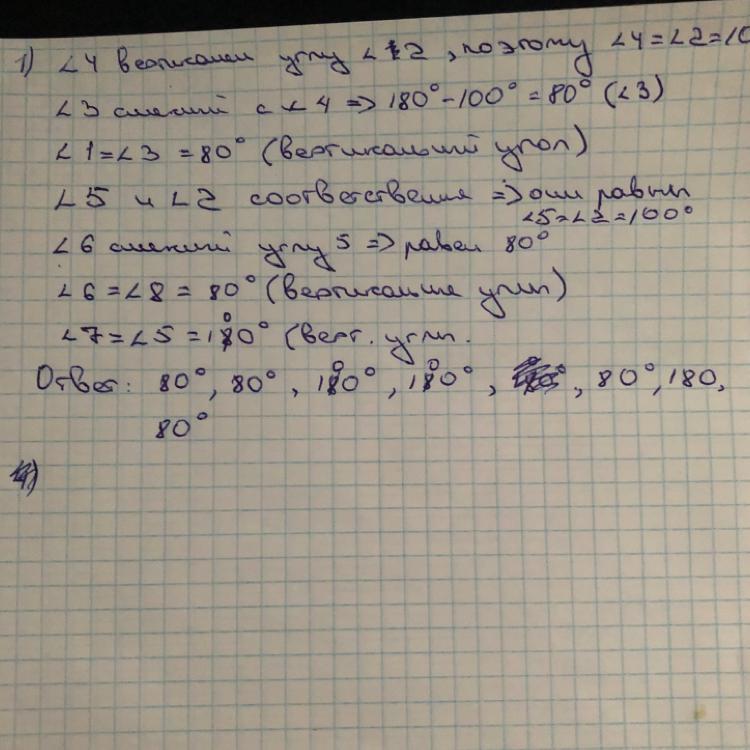 1) ∠4 вертикален углу ∠2, поэтому ∠4=∠2=10
∠3 смежный с ∠4 => 180°-100°=80° (∠3)
∠1=∠3=80° (вертикальный угол)
∠5 и ∠2 соответственные => они равны
∠5=∠2=100°
∠6 смежный углу 5 => равен 80°
∠6=∠8=80° (вертикальные углы)
∠7=∠5=100° (верт. углы.
Ответ: 80°, 80°, 100°, 100°, , 80°, 180,
80°